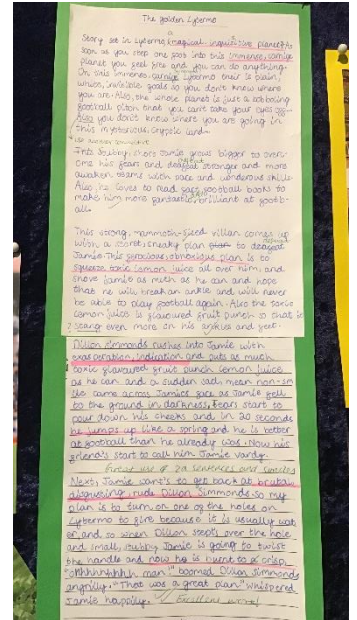 The golden Lytermo
Story set in Lytermo, (magical inquisitive planet). As
soon as you step one foot into this immense, comice
planet you feel free and you can do anything.
On this immense, Lytermo their is plain
which, invisible goals so you don't know where
you are. Also, the whole planet is just a
football pitch that you can't take your eyes
Also you don't know where you are going in
this mysterious, cryptic land.
This stubby, short Jamie grows bigger to overc-
ome his fears and stronger and more
awaken teams with pace and wonderous skills.
Also, he loves to read football books to
make him more fantastic, brilliant at footb-
all.
This strong, mammoth-sized villan comes up
with a secret, sneaky plan to
Jamie. This ferocious, obnoxious plan is to
squeeze toxic lemon juice all over him, and
shove Jamie as much as he can and hope
that he will break an ankle and will never
be able to play football again. Also the toxic
lemon juice is flavoured fruit punch so that it
stang even more on his ankles and feet.
Dillon Simmonds rushes into Jamie with
exasperation, indication and puts as much
toxic flavoured fruit punch lemon juice
as he can and a sudden sad, mean non-sm
ile came across Jamies face as Jamie fell
to the ground in darkness, tears start to
pour down his cheeks and in 20 seconds
he jumps up like a spring and he is better
at football than he already was. Now his
friend's start to call him Jamie Vardy.
Great use of 2a sentences and
Next, Jamie want's to get back at brutain
disgusting, rude Dillon Simmonds so my
plan is to turn on one of the holes on
Lytermo to fire because it is usually wat
er, and so when Dillon stept's over the hole
and small, stubby Jamie is going to twist
the handle and now he is burnt to a crisp
man!" boomed Dillon Simmonds
angrilly. "That was a great plan" whispered
Jamie happilly. Excellent work!